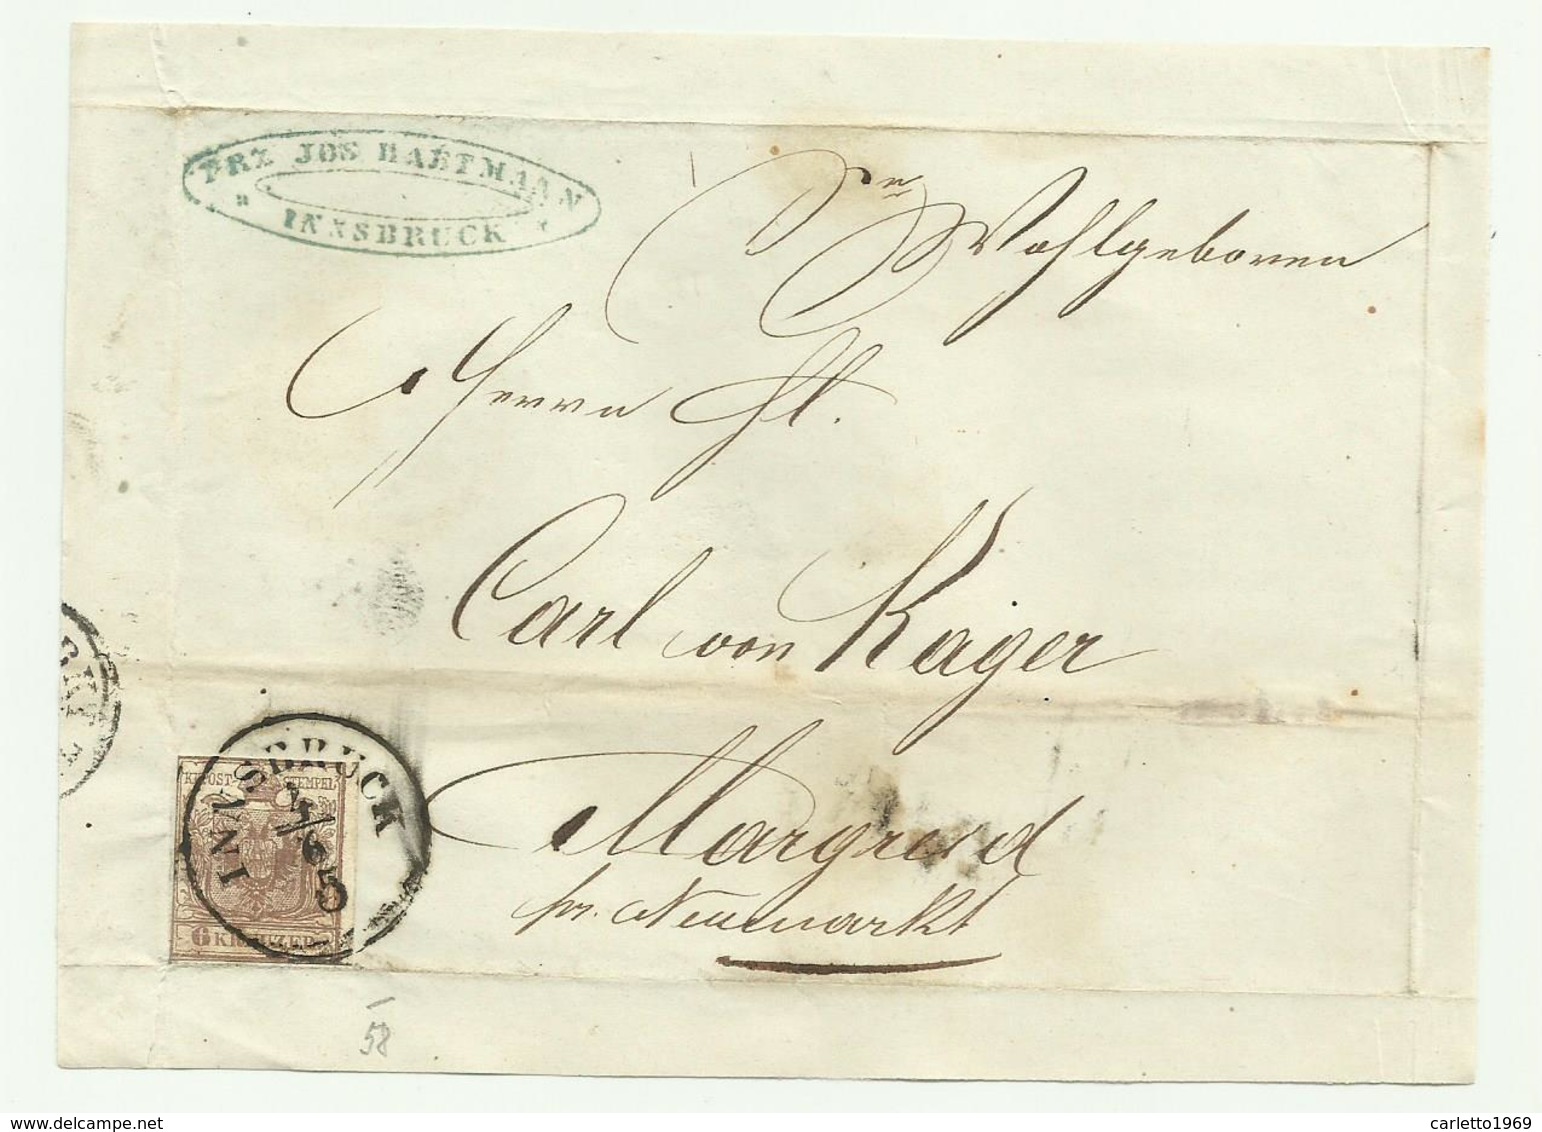 FRZ JOS HARTMANN
INNSBRUCK
Sr Wohlgeboren
Herrn H.
Carl von Kager
Margreid
pr. Neumarkt
KK POST-STEMPEL
6 KREUZER
INNSBRUCK
6
5
58
Delcampe.net
carletto1969